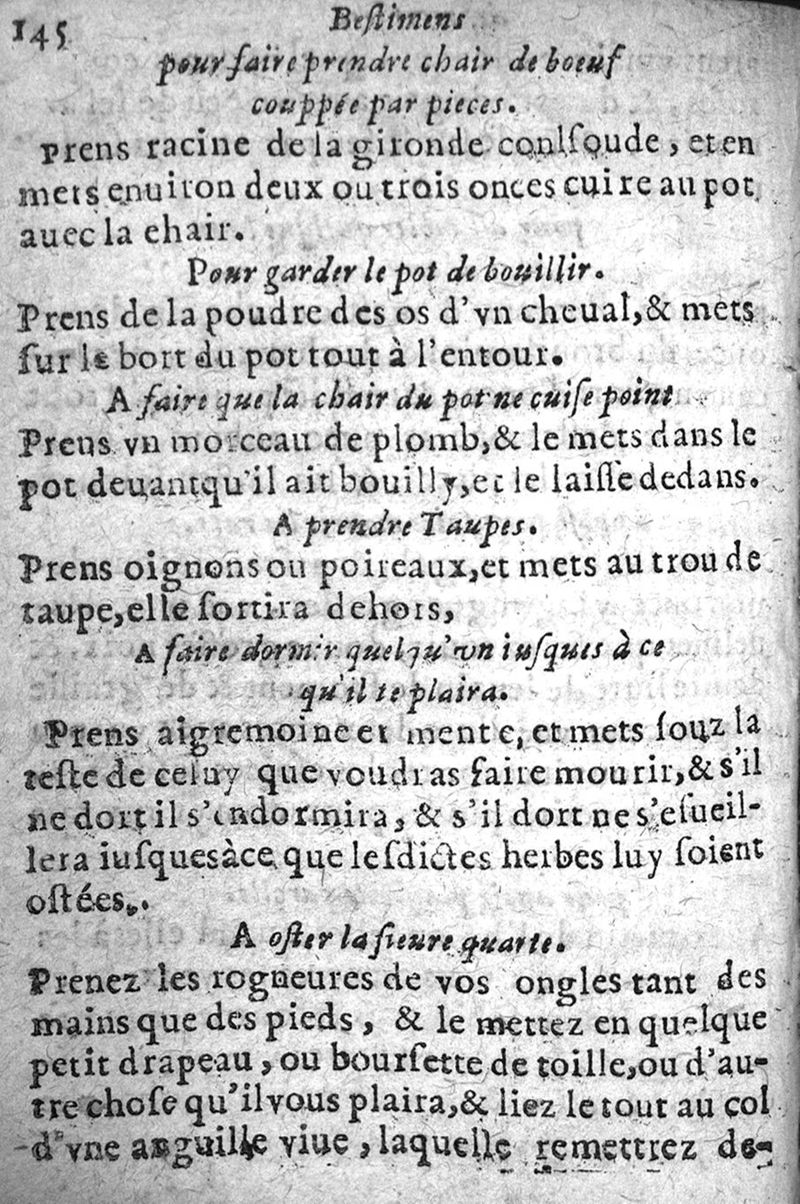 145
Beſtimens
pour faire prendre chair de bœuf
couppée par pieces.
Prens racine de la gironde conlſoude, et en
mets enuiron deux ou trois onces cuire au pot
auec la ehair.
Pour garder le pot de bouillir.
Prens de la poudre des os d'vn cheual,& mets
ſur le bort du pot tout à l'entour.
A faire que la chair du pot ne cuiſe point
Prens vn morceau de plomb,& le mets dans le
pot deuantqu'il ait bouilly,et le laiſſe dedans.
A prendre Taupes.
Prens oignons ou poireaux,et mets au trou de
taupe,elle ſortira dehors,
A faire dormir quelqu'vn iuſques à ce
qu'il te plaira.
Prens aigremoine et mente, et mets ſouz la
teſte de celuy que voudras faire mourir,& s'il
ne dort il s'endormira, & s'il dort ne s'eſueil-
lera iuſquesàce que leſdictes herbes luy ſoient
oſtées.
A oſter la fieure quarte.
Prenez les rogneures de vos ongles tant des
mains que des pieds, & le mettez en quelque
petit drapeau, ou bourſette de toille,ou d'au-
tre choſe qu'il vous plaira,& liez le tout au col
d'vne anguille viue, laquelle remettrez de-